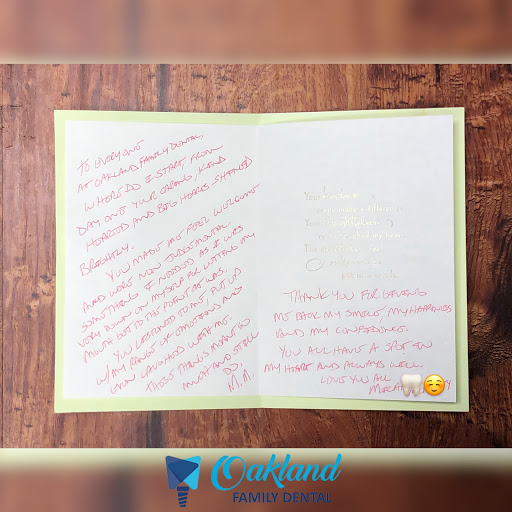 TO EVERYONE
AT OAKLAND FAMILY DENTAL,
WHERE DO I START. FROM
DAY ONE YOUR CARING, KIND
HEARTED AND BIG HEARTS SHINED
BRIGHTLY.
YOU MADE ME FEEL WELCOME
AND WERE NON JUDGEMENTAL
SOMETHING I NEEDED AS I WAS
VERY DOWN ON MYSELF FOR LETTING MY
MOUTH GET TO THIS POINT AS WAS.
YOU LISTENED TO ME, PUT UP
W/ MY RANGE OF EMOTIONS AND
EVEN LAUGHED WITH ME.
THESE THINGS MEANT SO
MUCH AND STILL
DO.
M.M.
Your
made a difference.
Your
my heart.
The
THANK YOU FOR GIVING
ME BACK MY SMILE, MY HAPPINESS
AND MY CONFIDENCE.
YOU ALL HAVE A SPOT IN
MY HEART AND ALWAYS WILL.
LOVE YOU ALL
Oakland
FAMILY DENTAL